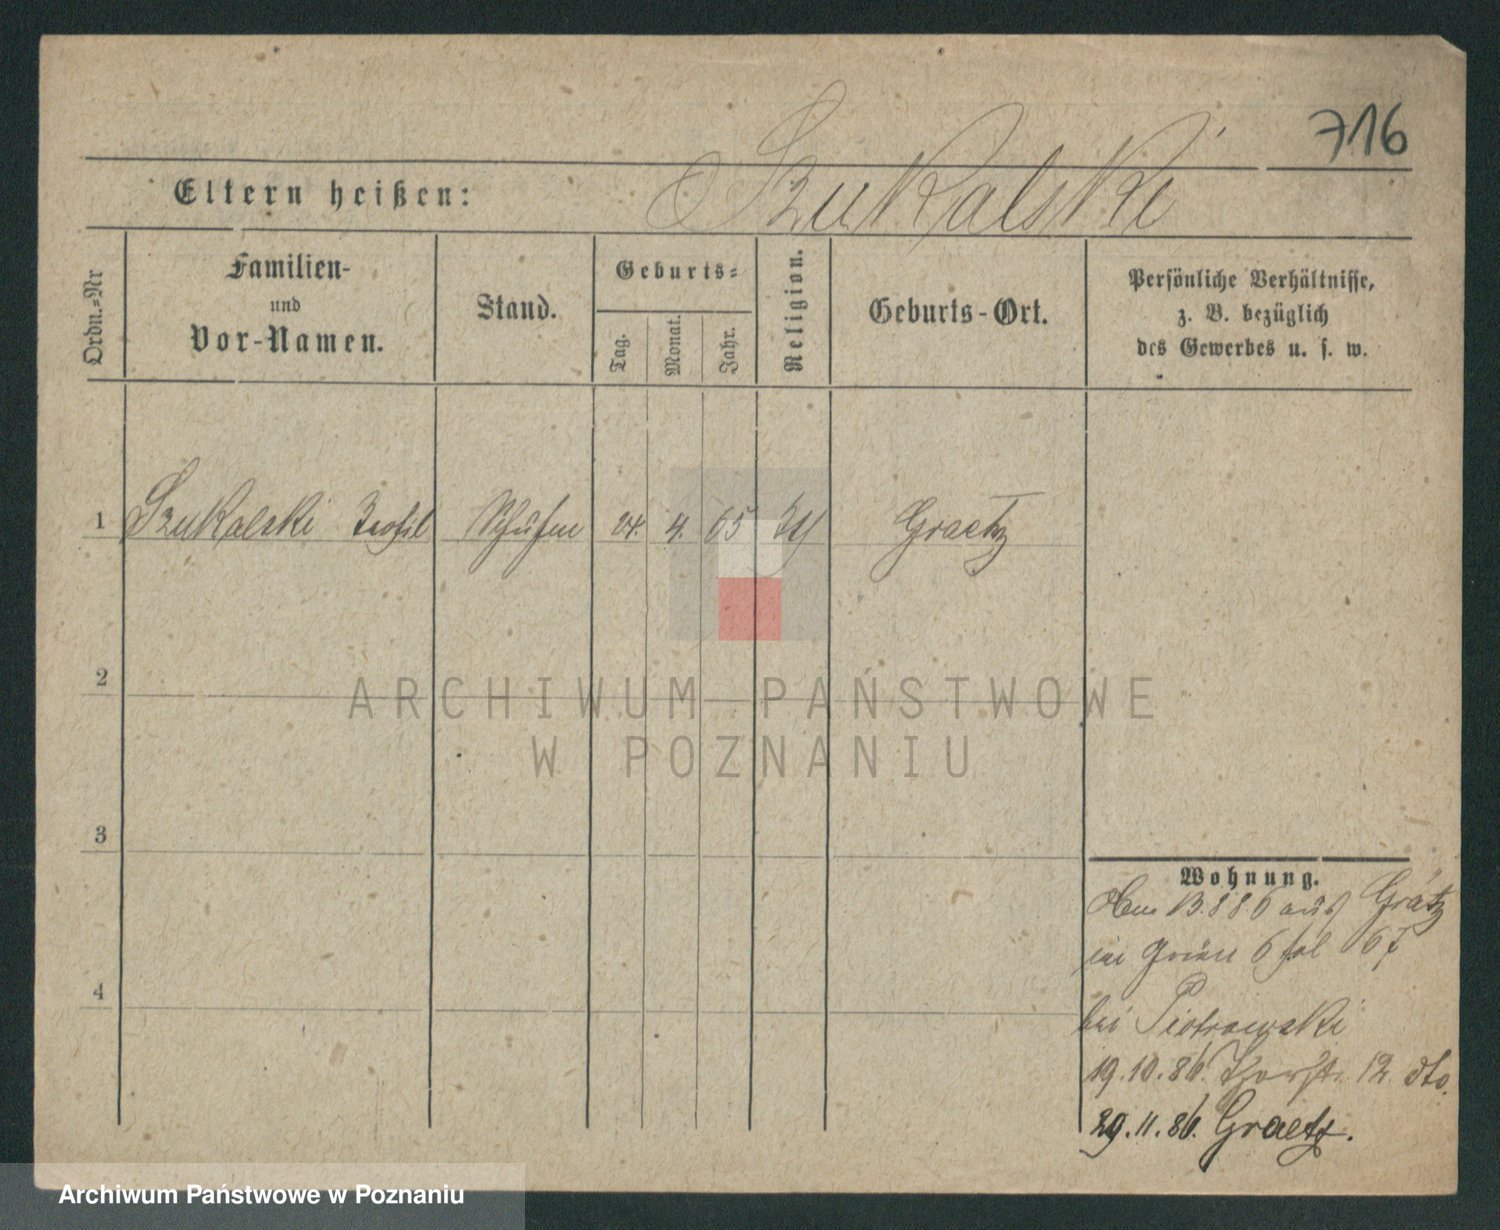 716
Szukalski
Eltern heißen:
Ordn.-Nr
Familien-
und
Vor-Namen.
Stand.
Geburts-
Tag.
Monat.
Jahr.
Religion.
Geburts-Ort.
Persönliche Verhältnisse,
z. B. bezüglich
des Gewerbes u. s. w.
1 Szukalski Teofil 24. 4. 65 Graetz
2
3
4
ARCHIWUM PAŃSTWOWE
W POZNANIU
Wohnung.
13.8 86 aus Grätz
in 6 fol 67
bei Piotrowski
19.10.86. 12 dto.
29.11.86. Graetz.
Archiwum Państwowe w Poznaniu